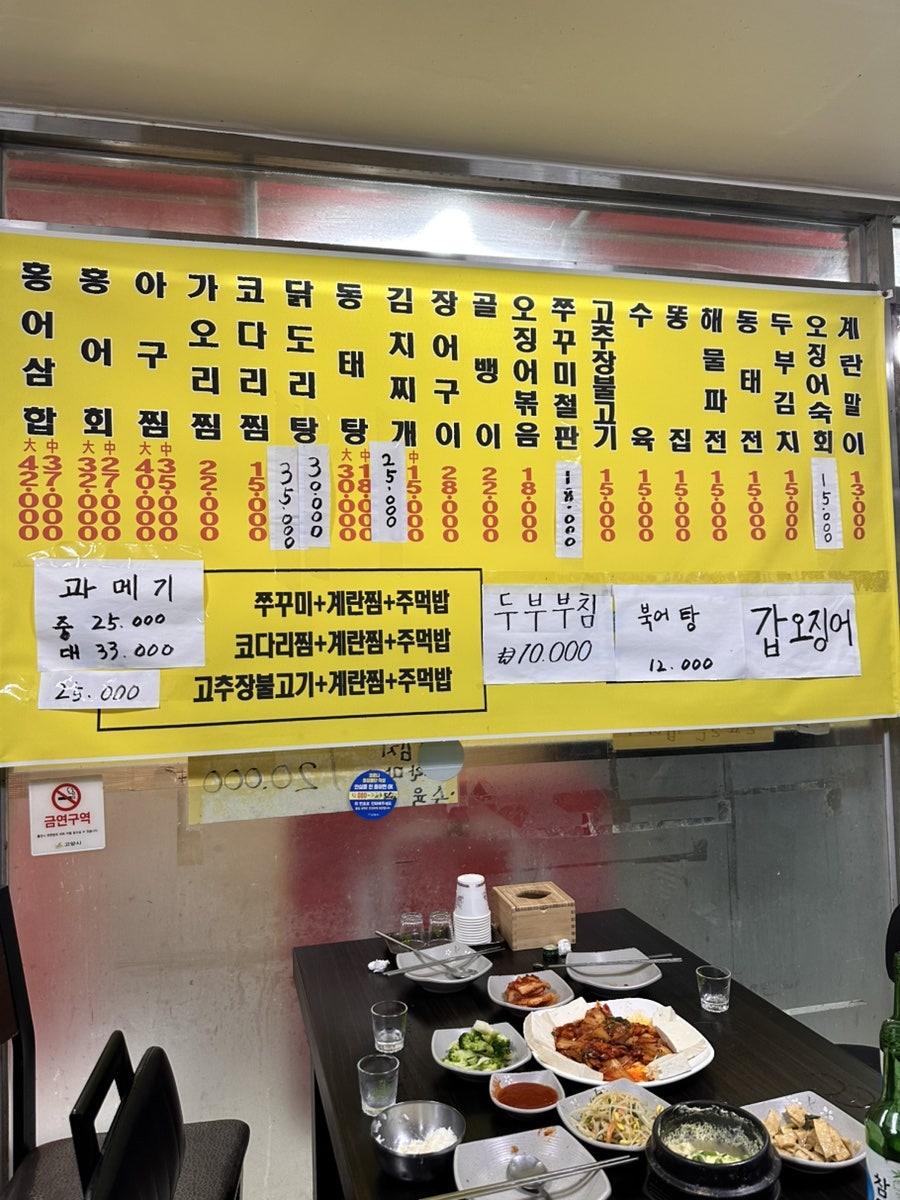 홍어삼합 大 中 42.000 37.000
홍어회 大 中 32.000 27.000
아구찜 大 中 40.000 35.000
가오리찜 22.000
코다리찜 15.000
닭도리탕 35.000 30.000
동태탕 大 中 30.000 18.000
김치찌개 25.000 中 15.000
장어구이 28.000
골뱅이 22.000
오징어볶음 18.000
쭈꾸미철판 18.000
고추장불고기 15.000
수육 15.000
똥집 15.000
해물파전 15.000
동태전 15.000
두부김치 15.000
오징어숙회 15.000
계란말이 13.000
과메기
중 25.000
대 33.000
25.000
쭈꾸미+계란찜+주먹밥
코다리찜+계란찜+주먹밥
고추장불고기+계란찜+주먹밥
두부부침
₩10.000
북어탕
12.000
갑오징어
20.000
금연구역
고양시
참